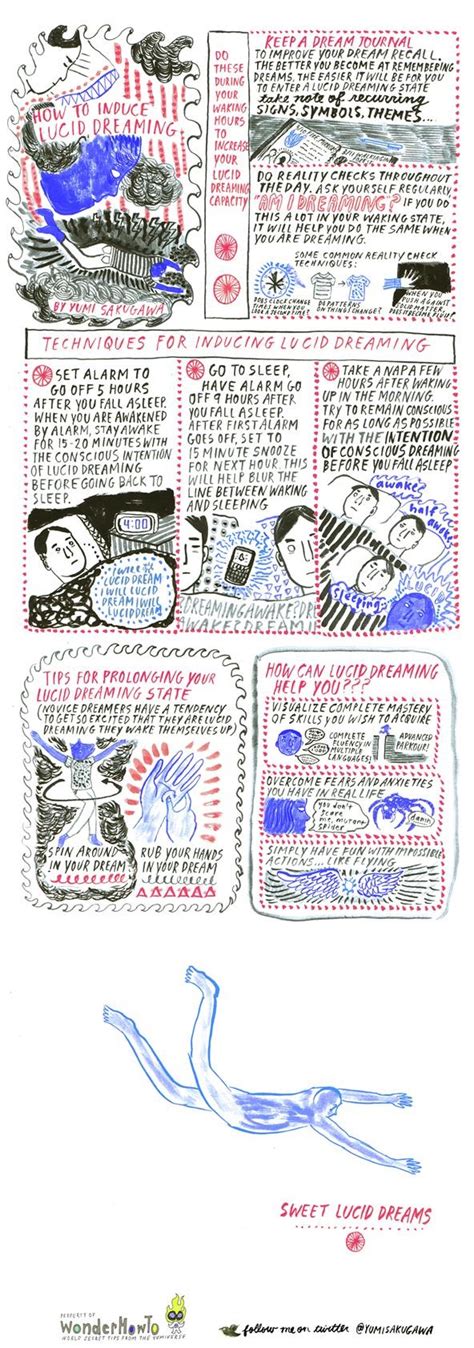 HOW TO INDUCE
LUCID DREAMING
BY YUMI SAKUGAWA
DO
THESE
DURING
YOUR
WAKING
HOURS
TO
INCREASE
YOUR
LUCID
DREAMING
CAPACITY
KEEP A DREAM JOURNAL
TO IMPROVE YOUR DREAM RECALL.
THE BETTER YOU BECOME AT REMEMBERING
DREAMS, THE EASIER IT WILL BE FOR YOU
TO ENTER A LUCID DREAMING STATE
take note of recurring
SIGNS, SYMBOLS, THEMES...
DO REALITY CHECKS THROUGHOUT
THE DAY. ASK YOURSELF REGULARLY
"AM I DREAMING"? IF YOU DO
THIS A LOT IN YOUR WAKING STATE,
IT WILL HELP YOU DO THE SAME WHEN
YOU ARE DREAMING.
SOME COMMON REALITY CHECK
TECHNIQUES:
DOES CLOCK CHANGE
TIMES WHEN YOU
LOOK A SECOND TIME?
DO PATTERNS
ON THINGS CHANGE?
WHEN YOU
PUSH AGAINST
SOLID MATTER,
DOES IT BECOME
TECHNIQUES FOR INDUCING LUCID DREAMING
SET ALARM TO
GO OFF 5 HOURS
AFTER YOU FALL ASLEEP.
WHEN YOU ARE AWAKENED
BY ALARM, STAY AWAKE
FOR 15-20 MINUTES WITH
THE CONSCIOUS INTENTION
OF LUCID DREAMING
BEFORE GOING BACK TO
SLEEP.
4:00
I WILL
LUCID DREAM
I WILL LUCID
DREAM I WILL
LUCID DREAM
GO TO SLEEP,
HAVE ALARM GO
OFF 9 HOURS AFTER
YOU FALL ASLEEP.
AFTER FIRST ALARM
GOES OFF, SET TO
15 MINUTE SNOOZE
FOR NEXT HOUR. THIS
WILL HELP BLUR THE
LINE BETWEEN WAKING
AND SLEEPING
DREAMING AWAKE? DR
AWAKE? DREAM
TAKE A NAP A FEW
HOURS AFTER WAKING
UP IN THE MORNING.
TRY TO REMAIN CONSCIOUS
FOR AS LONG AS POSSIBLE
WITH THE INTENTION
OF CONSCIOUS DREAMING
BEFORE YOU FALL ASLEEP
awake?
half
awake
sleeping
LUCID
TIPS FOR PROLONGING YOUR
LUCID DREAMING STATE
(NOVICE DREAMERS HAVE A TENDENCY
TO GET SO EXCITED THAT THEY ARE LUCID
DREAMING THEY WAKE THEMSELVES UP)
SPIN AROUND
IN YOUR DREAM
RUB YOUR HANDS
IN YOUR DREAM
HOW CAN LUCID DREAMING
HELP YOU???
VISUALIZE COMPLETE MASTERY
OF SKILLS YOU WISH TO ACQUIRE
COMPLETE
FLUENCY IN
MULTIPLE
LANGUAGES!
ADVANCED
PARKOUR!
OVERCOME FEARS AND ANXIETIES
YOU HAVE IN REAL LIFE
you don't
scare
me, mutant
spider
damn
SIMPLY HAVE FUN WITH IMPOSSIBLE
ACTIONS... LIKE FLYING
SWEET LUCID DREAMS
PROPERTY OF
WonderHowTo
WORLD SECRET TIPS FROM THE YUMIVERSE
follow me on twitter @YUMISAKUGAWA